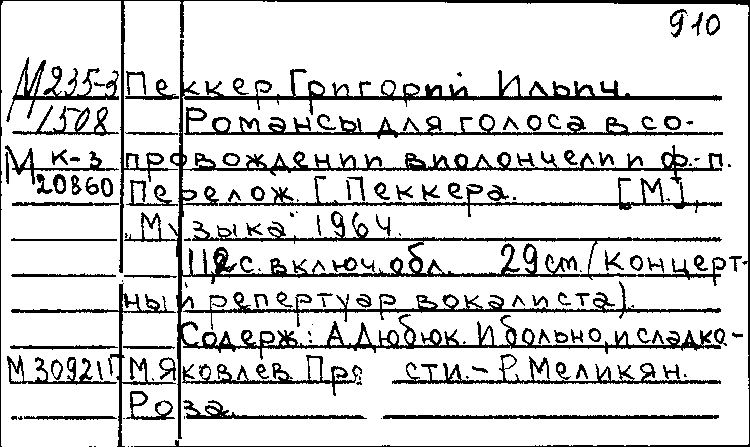 910
М235-3 Пеккер, Григорий Ильич.
1508 Романсы для голоса в со-
М к-3 провождении виолончели и ф.-п.
20860 Перелож. Г. Пеккера. [М.],
"Музыка", 1964.
с. включ. обл. 29 см. (Концерт-
ный репертуар вокалиста).
Содерж.: А. Дюбюк. И больно, и сладко-
М30921П М. Яковлев. сти. - Р. Меликян.
Роза.